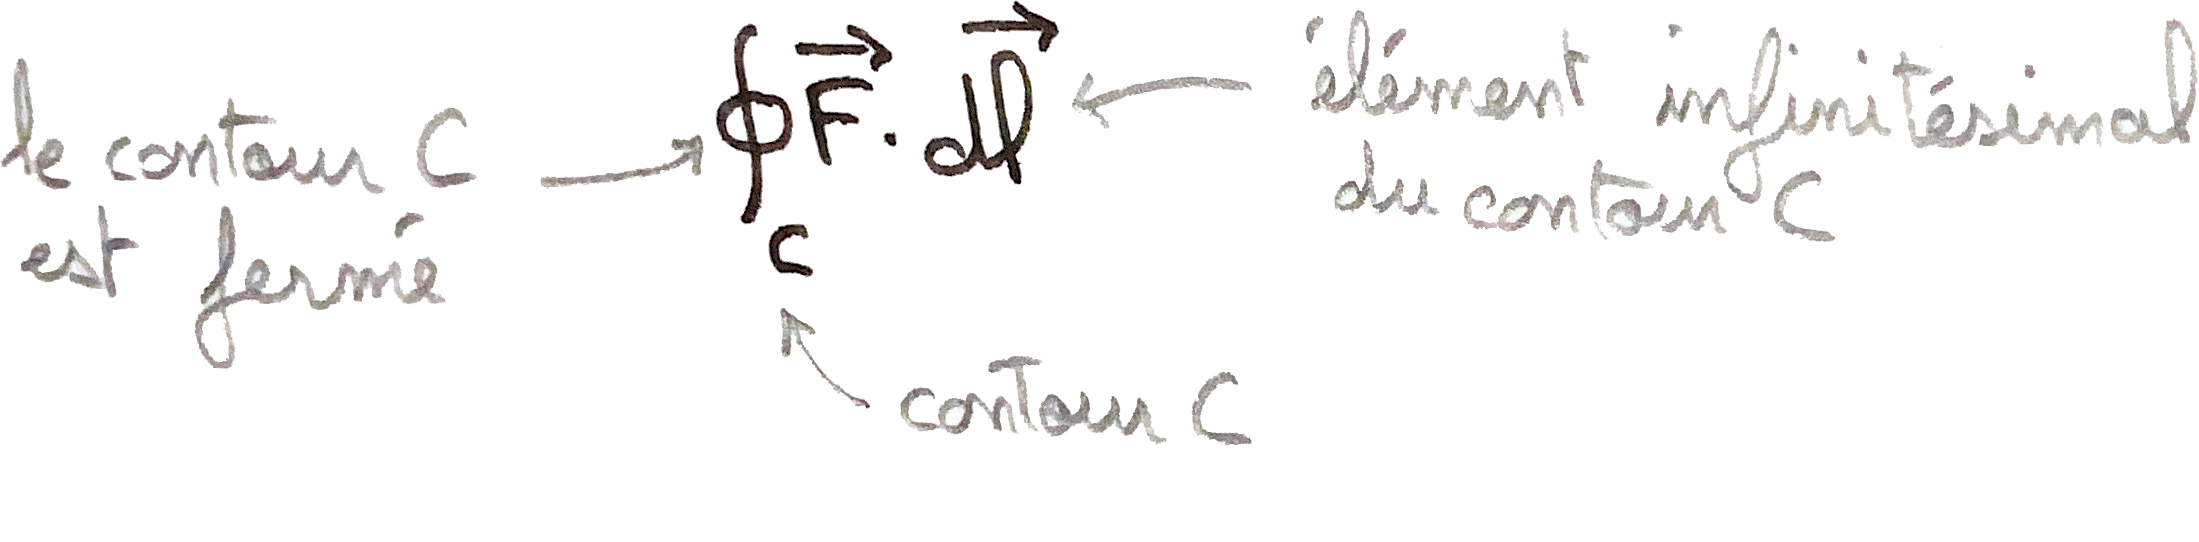 le contour C
est fermé
∮ F⃗ . dl⃗
C
élément infinitésimal
du contour C
contour C